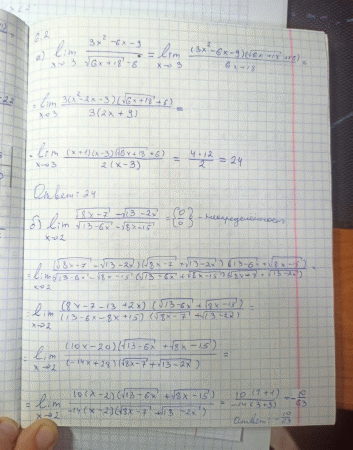 6.2
а) lim x→3 (3x² - 6x - 9)/(√(6x+18) - 6) = lim x→3 (3x² - 6x - 9)(√(6x+18) + 6)/(6x - 18) =
= lim x→3 3(x² - 2x - 3)(√(6x+18) + 6)/3(2x + 9) =
= lim x→3 (x+1)(x-3)(√(6x+18) + 6)/2(x-3) = 4·12/2 = 24
Ответ: 24
б) lim x→2 (√(8x-7) - √(13-2x))/(√(13-6x) - √(8x-15)) = {0/0} - неопределенность
= lim x→2 (√(8x-7) - √(13-2x))(√(8x-7) + √(13-2x))(√(13-6x) + √(8x-15))/(√(13-6x) - √(8x-15))(√(13-6x) + √(8x-15))(√(8x-7) + √(13-2x)) =
= lim x→2 (8x - 7 - 13 + 2x)(√(13-6x) + √(8x-15))/(13 - 6x - 8x + 15)(√(8x-7) + √(13-2x)) =
= lim x→2 (10x - 20)(√(13-6x) + √(8x-15))/(-14x + 28)(√(8x-7) + √(13-2x)) =
= lim x→2 10(x-2)(√(13-6x) + √(8x-15))/-14(x-2)(√(8x-7) + √(13-2x)) = 10(1+1)/-14(3+3)
Ответ: